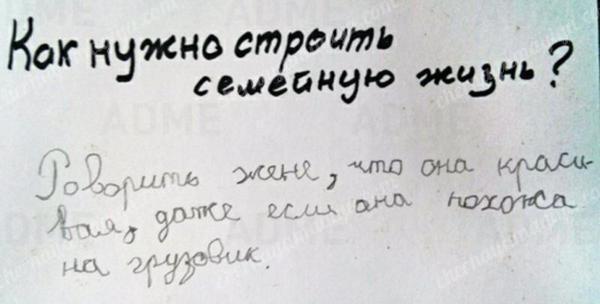 Как нужно строить
семейную жизнь?
Говорить жене, что она краси-
вая, даже если она похожа
на грузовик.
ADME